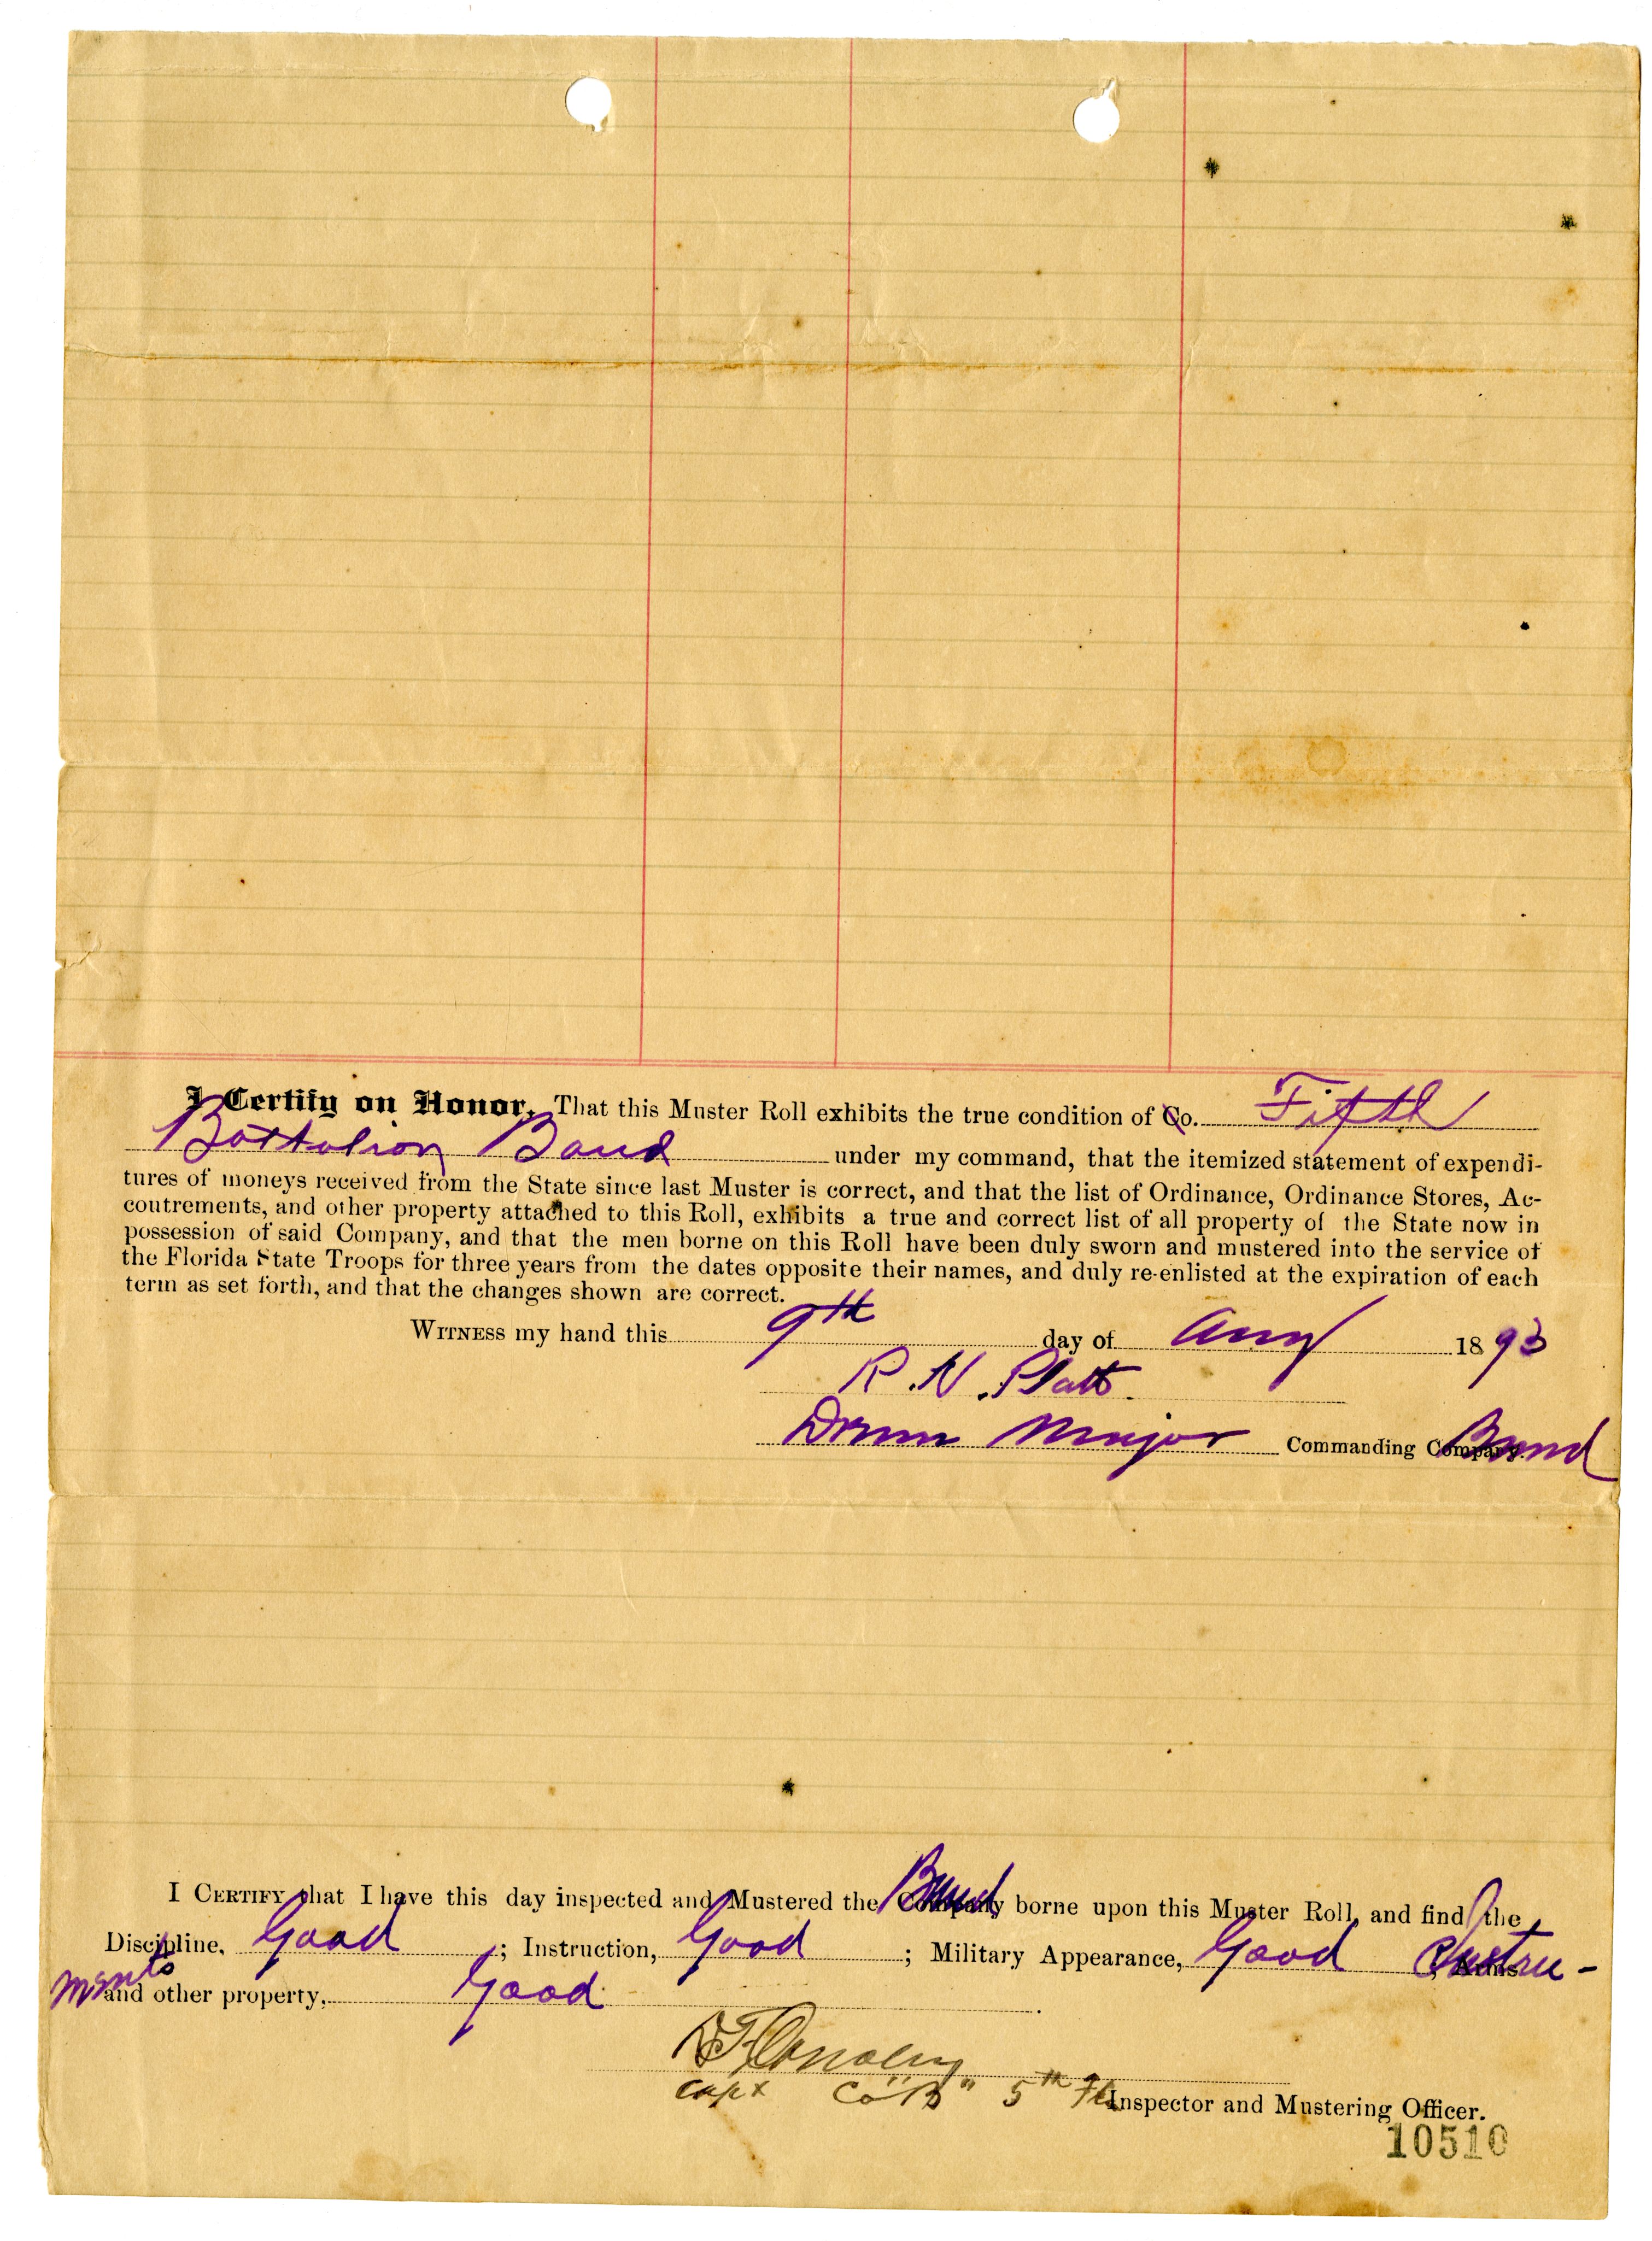 I Certify on Honor, That this Muster Roll exhibits the true condition of Co. Fifth
Battalion Band under my command, that the itemized statement of expendi-
tures of moneys received from the State since last Muster is correct, and that the list of Ordinance, Ordinance Stores, Ac-
coutrements, and other property attached to this Roll, exhibits a true and correct list of all property of the State now in
possession of said Company, and that the men borne on this Roll have been duly sworn and mustered into the service of
the Florida State Troops for three years from the dates opposite their names, and duly re-enlisted at the expiration of each
term as set forth, and that the changes shown are correct.
WITNESS my hand this 9th day of Aug 1893
R. N. Platts.
Drum Major Commanding Company. Band
I CERTIFY that I have this day inspected and Mustered the Company Band borne upon this Muster Roll, and find the
Discipline, Good ; Instruction, Good ; Military Appearance, Good ; Arms Instru-
ments and other property, Good .
Capt Co "B" 5th Fla Inspector and Mustering Officer.
10510